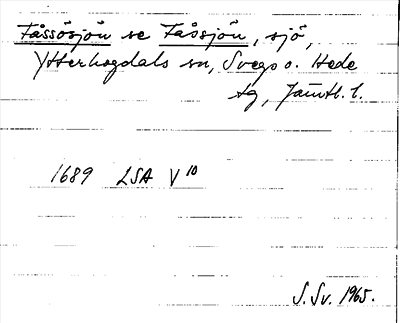 Fåssösjön se Fåsjön, sjö,
Ytterhogdals sn, Svegs o. Hede
tg, Jämtl. l.
1689 LSA V 10
S. Sv. 1965.